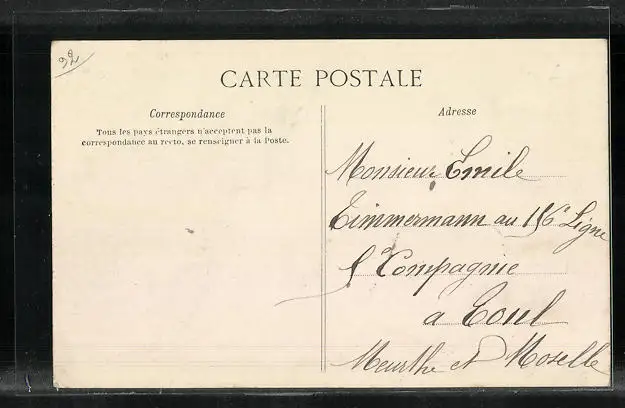 CARTE POSTALE
Correspondance
Tous les pays étrangers n'acceptent pas la
correspondance au recto, se renseigner à la Poste.
Adresse
Monsieur Emile
Zimmermann au 156e Ligne
Compagnie
a Toul
Meurthe et Moselle